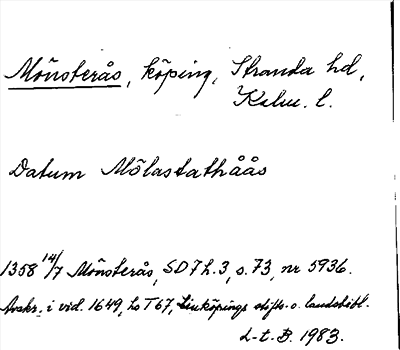 Mönsterås, köping, Stranda hd,
Kalm. l.
Datum Mölastathåås
1358 14/7 Mönsterås, SD 7 h. 3, s. 73, nr 5936.
Avskr. i vid. 1649, Ls T 67, Linköpings stifts- o. landsbibl.
L-t. B. 1983.